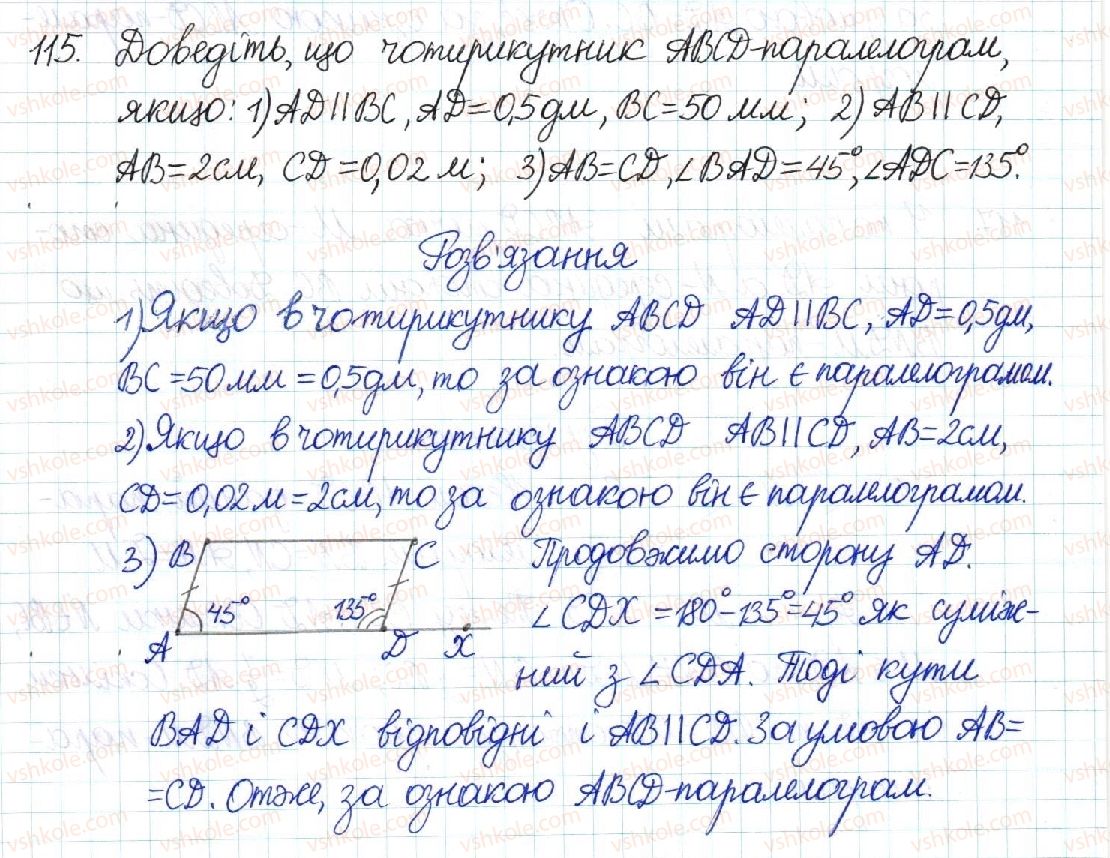 115. Доведіть, що чотирикутник ABCD-паралелограм,
якщо: 1) AD||BC, AD=0,5дм, BC=50 мм; 2) AB||CD,
AB=2см, CD=0,02 м; 3) AB=CD, ∠BAD=45°, ∠ADC=135°.
Розв'язання
1) Якщо в чотирикутнику ABCD AD||BC, AD=0,5дм,
BC=50мм=0,5дм, то за ознакою він є паралелограмом.
2) Якщо в чотирикутнику ABCD AB||CD, AB=2см,
CD=0,02м=2см, то за ознакою він є паралелограмом.
3) B C Продовжимо сторону AD.
45° 135° ∠CDX=180°-135°=45° як суміж-
A D X ний з ∠CDA. Тоді кути
BAD і CDX відповідні і AB||CD. За умовою AB=
=CD. Отже, за ознакою ABCD-паралелограм.
vshkole.com